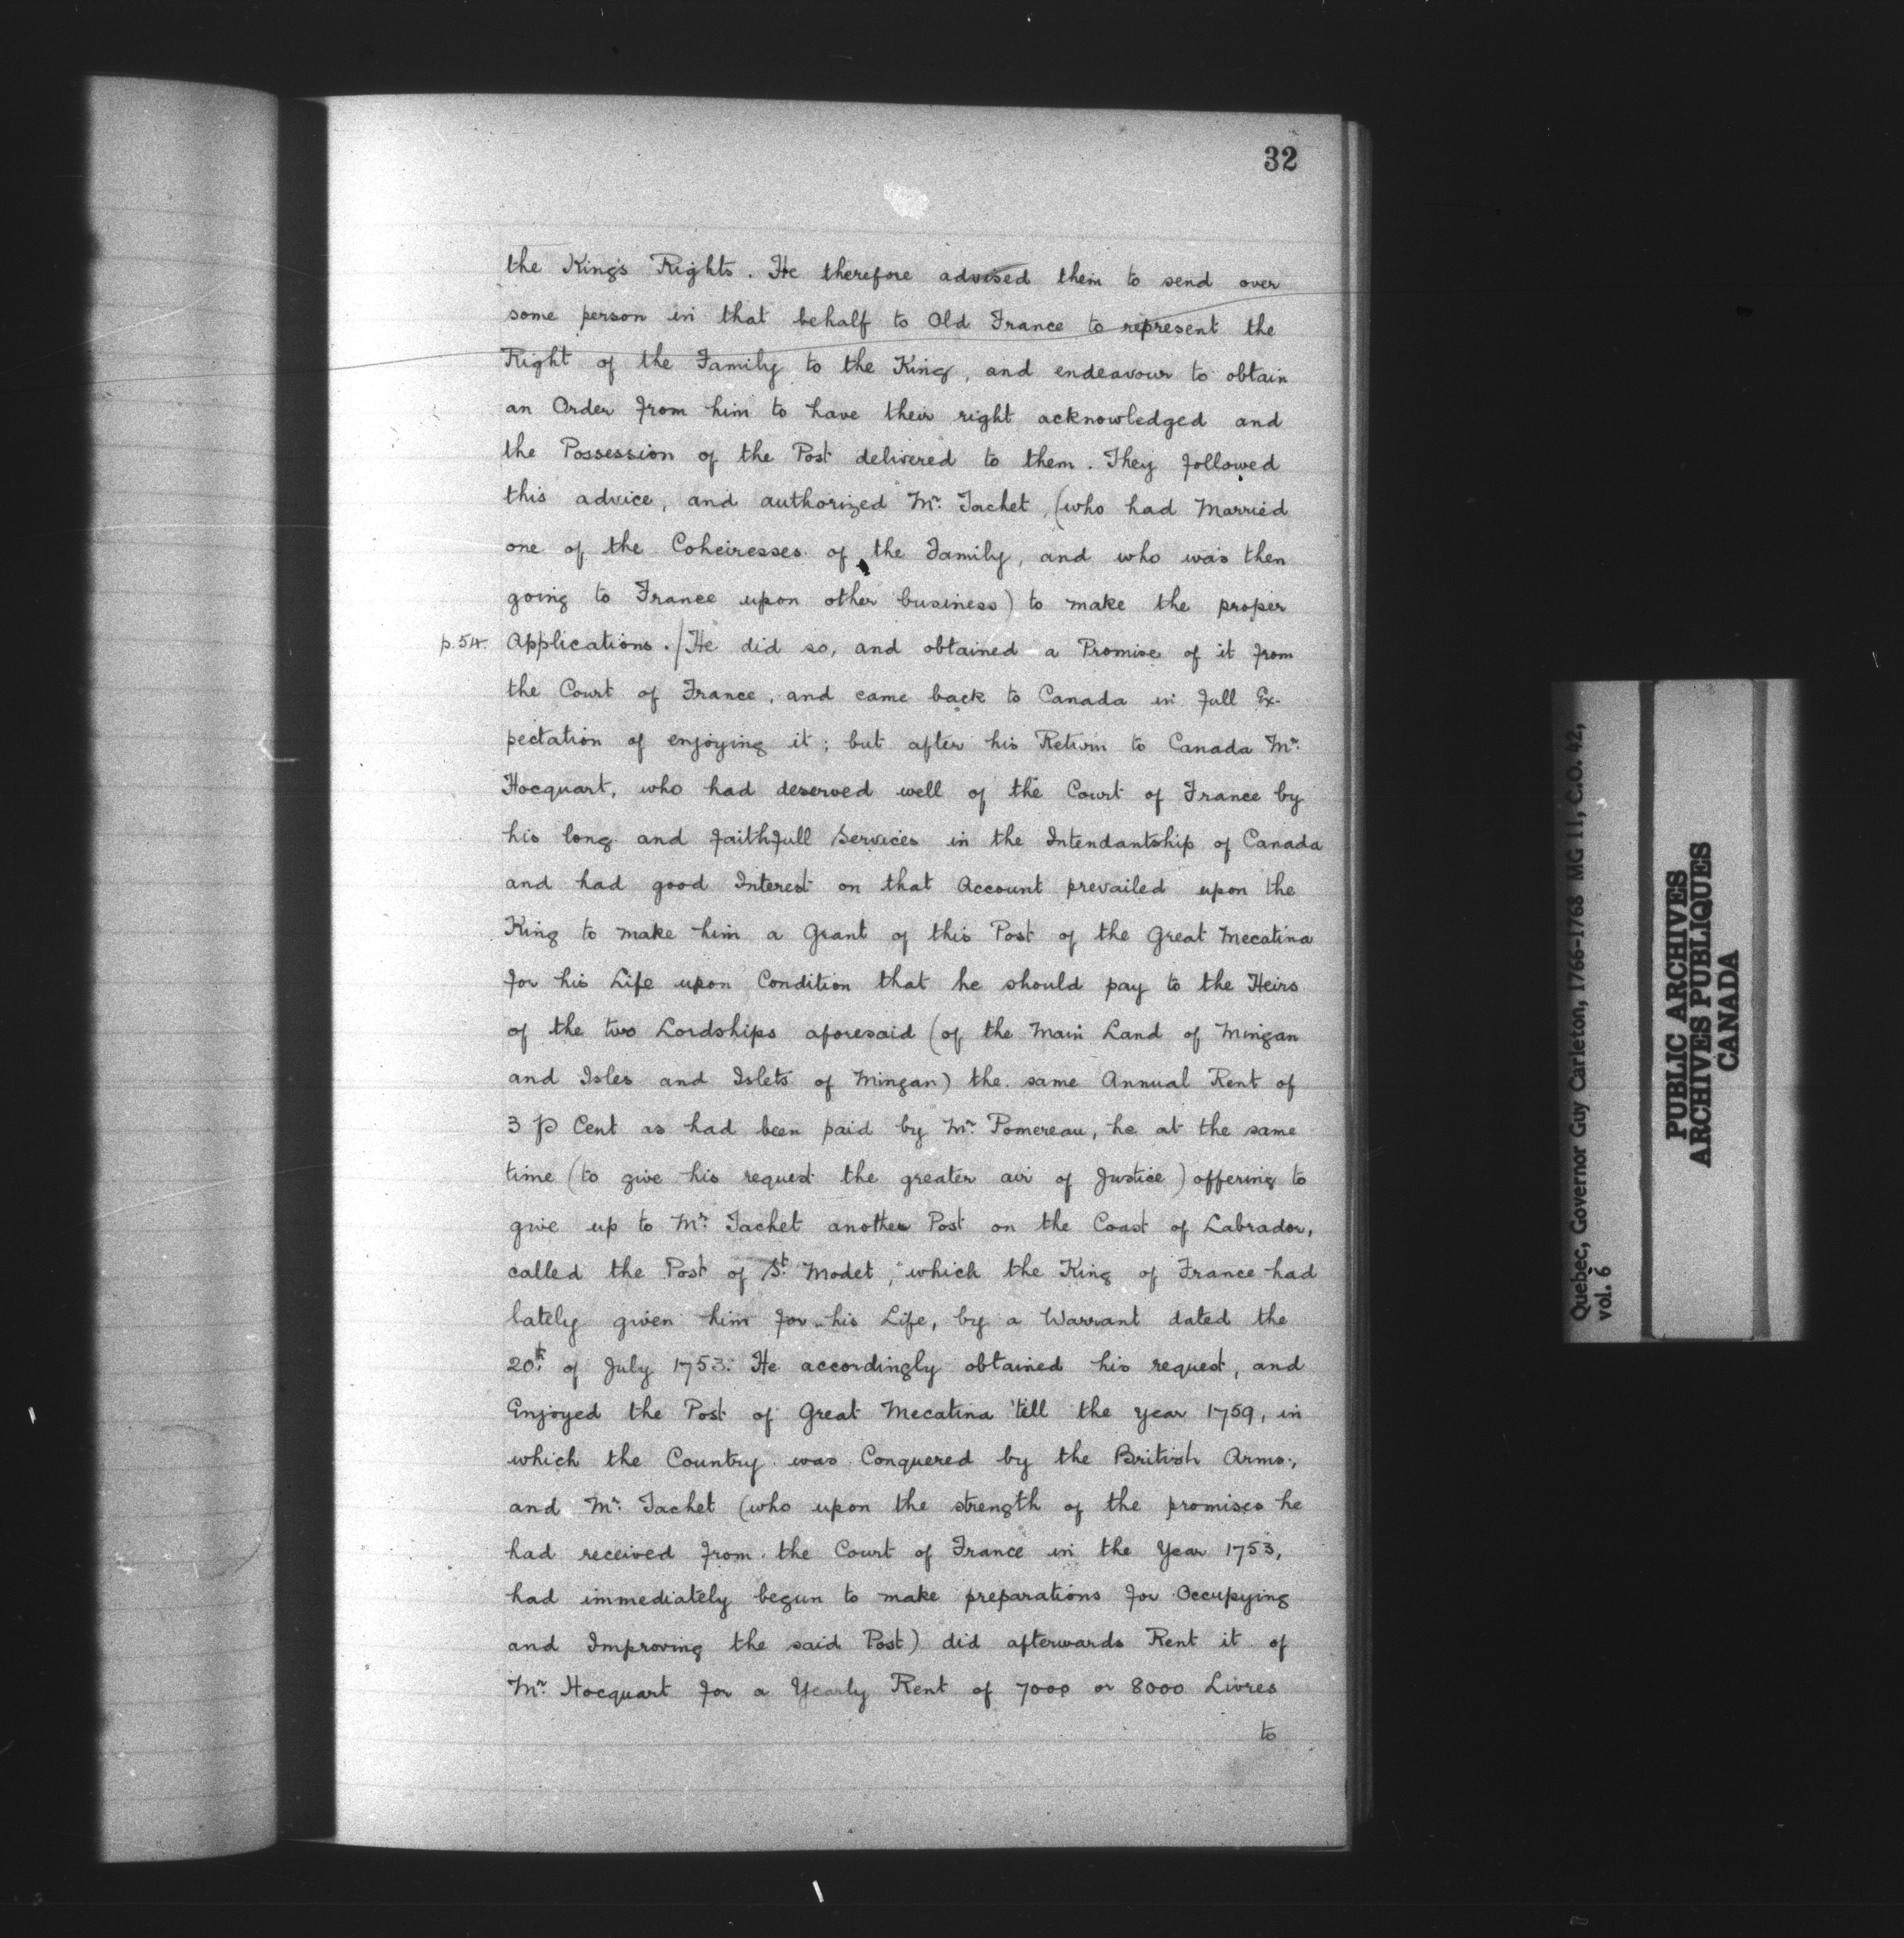 32
the King's Rights. He therefore advised them to send over
some person in that behalf to Old France to represent the
Right of the Family to the King, and endeavour to obtain
an Order from him to have their right acknowledged and
the Possession of the Post delivered to them. They followed
this advice, and authorized Mr. Tachet, (who had Married
one of the Coheiresses of the Family, and who was then
going to France upon other business) to make the proper
p.54. Applications./He did so, and obtained a Promise of it from
the Court of France, and came back to Canada in full Ex-
pectation of enjoying it; but after his Return to Canada Mr.
Hocquart, who had deserved well of the Court of France by
his long and faithfull Services in the Intendantship of Canada
and had good Interest on that Account prevailed upon the
King to make him a Grant of this Post of the Great Mecatina
for his Life upon Condition that he should pay to the Heirs
of the two Lordships aforesaid (of the Main Land of Mingan
and Isles and Islets of Mingan) the same Annual Rent of
3 ⅌ Cent as had been paid by Mr. Pomereau, he at the same
time (to give his request the greater air of Justice) offering to
give up to Mr. Tachet another Post on the Coast of Labrador,
called the Post of St. Modet, which the King of France had
lately given him for his Life, by a Warrant dated the
20th. of July 1753. He accordingly obtained his request, and
Enjoyed the Post of Great Mecatina 'till the Year 1759, in
which the Country was Conquered by the British Arms;
and Mr. Tachet (who upon the strength of the promises he
had received from the Court of France in the Year 1753,
had immediately begun to make preparations for Occupying
and Improving the said Post) did afterwards Rent it of
Mr. Hocquart for a Yearly Rent of 7000 or 8000 Livres
to
Quebec, Governor Guy Carleton, 1766-1768 MG 11, C.O. 42,
vol. 6
PUBLIC ARCHIVES
ARCHIVES PUBLIQUES
CANADA